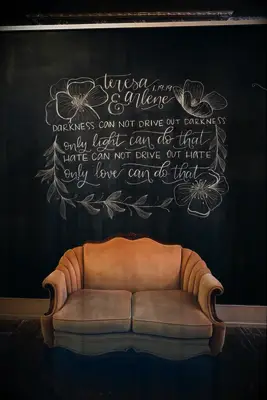 teresa
& arlene
DARKNESS CAN NOT DRIVE OUT DARKNESS
only light can do that
HATE CAN NOT DRIVE OUT HATE
only love can do that